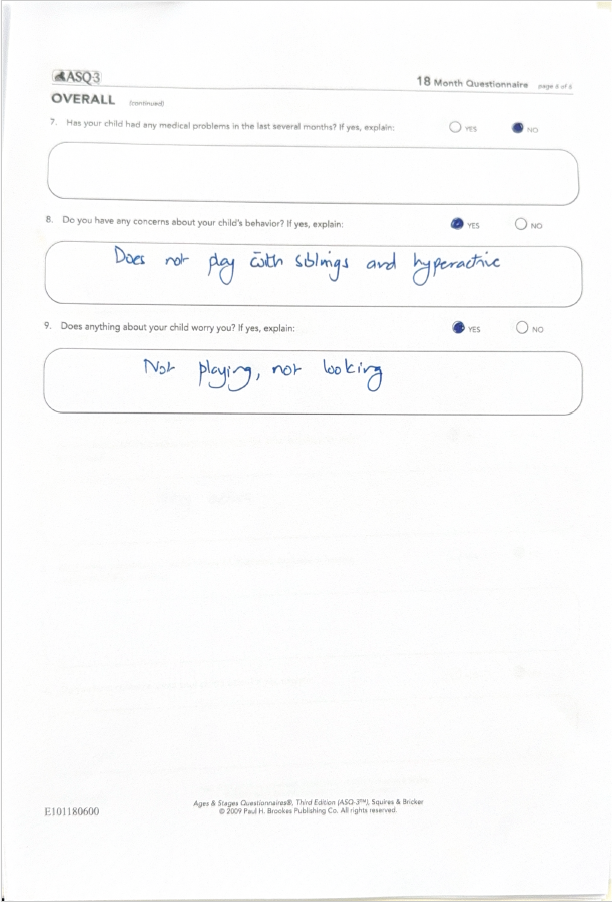 ASQ3
18 Month Questionnaire page 6 of 6
OVERALL (continued)
7. Has your child had any medical problems in the last several months? If yes, explain: YES NO
8. Do you have any concerns about your child's behavior? If yes, explain: YES NO
Does not play with siblings and hyperactive
9. Does anything about your child worry you? If yes, explain: YES NO
Not playing, not looking
Ages & Stages Questionnaires®, Third Edition (ASQ-3™), Squires & Bricker
E101180600
© 2009 Paul H. Brookes Publishing Co. All rights reserved.